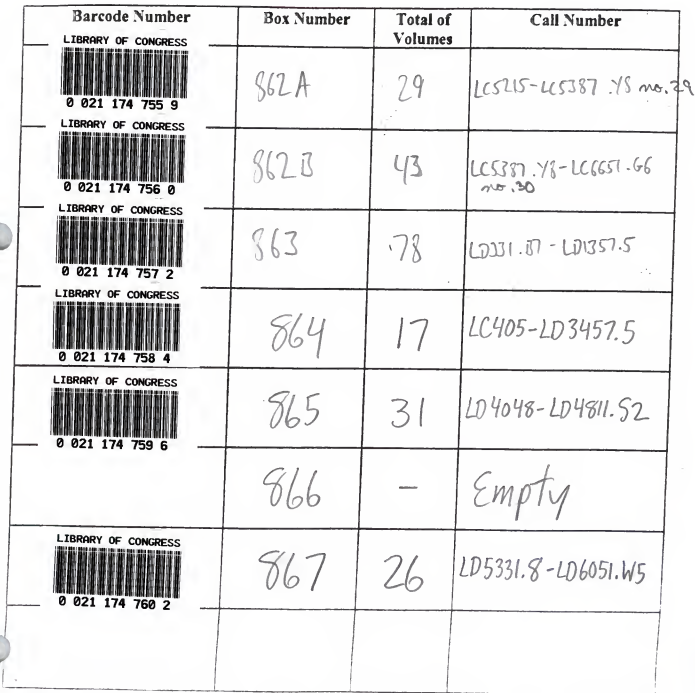 Barcode Number Box Number Total of Volumes Call Number
LIBRARY OF CONGRESS
0 021 174 755 9
862A 29 LC5215-LC5387 .Y8 no.29
LIBRARY OF CONGRESS
0 021 174 756 0
862B 43 LC5387.Y8-LC6651.G6
no.30
LIBRARY OF CONGRESS
0 021 174 757 2
863 78 LD331.B7 - LD1357.5
LIBRARY OF CONGRESS
0 021 174 758 4
864 17 LC405-LD3457.5
LIBRARY OF CONGRESS
0 021 174 759 6
865 31 LD4048-LD4811.S2
866 — Empty
LIBRARY OF CONGRESS
0 021 174 760 2
867 26 LD5331.8-LD6051.W5